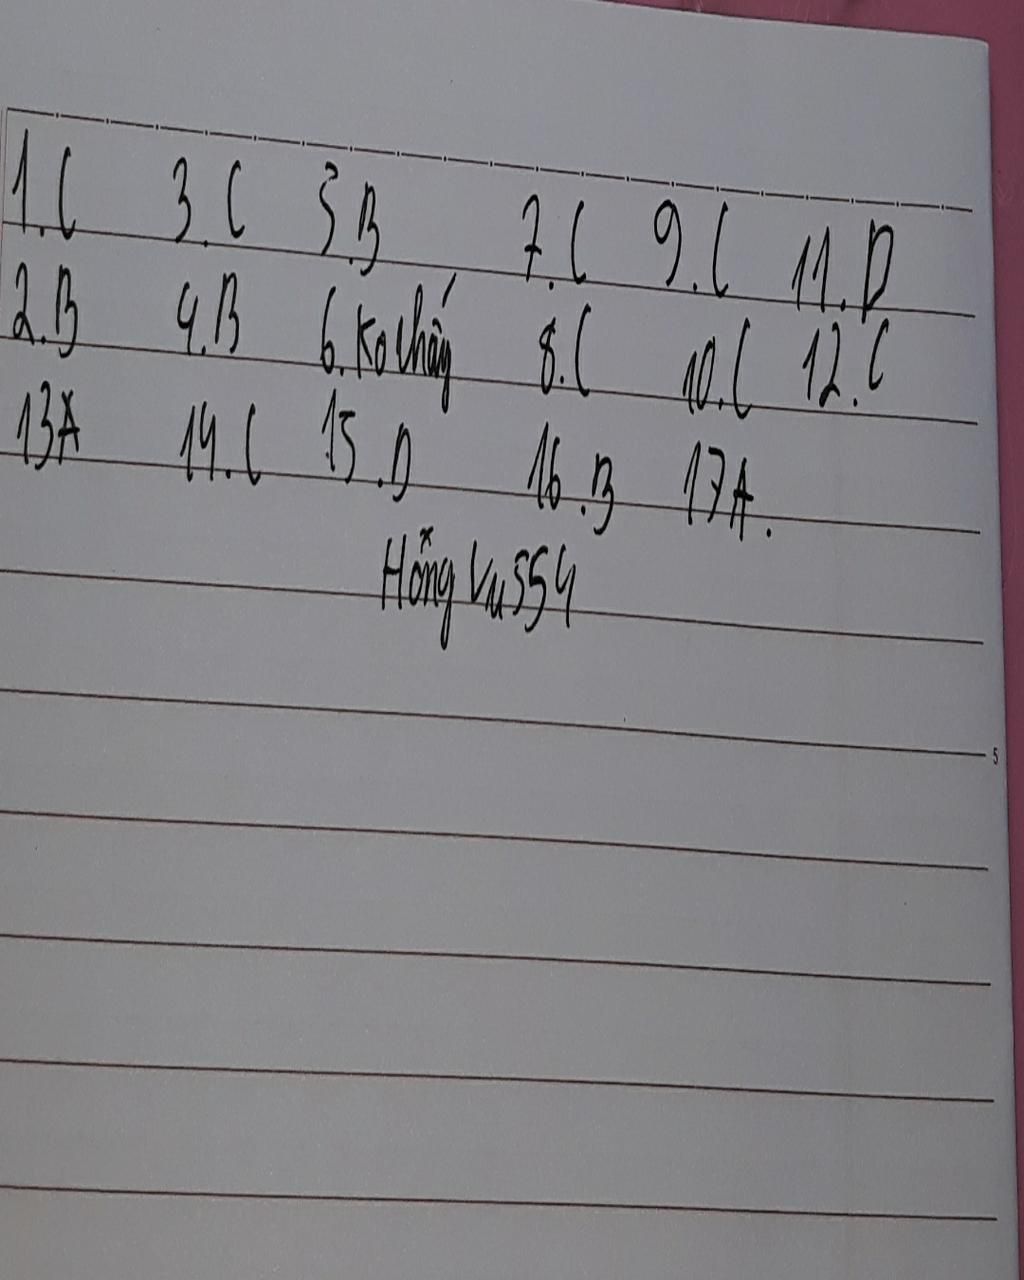 1.C 3.C 5.B 7.C 9.C 11.D
2.B 4.B 6.Ko cháy 8.C 10.C 12.C
13A 14.C 15.D 16.B 17A.
Hỗng Vu554
5